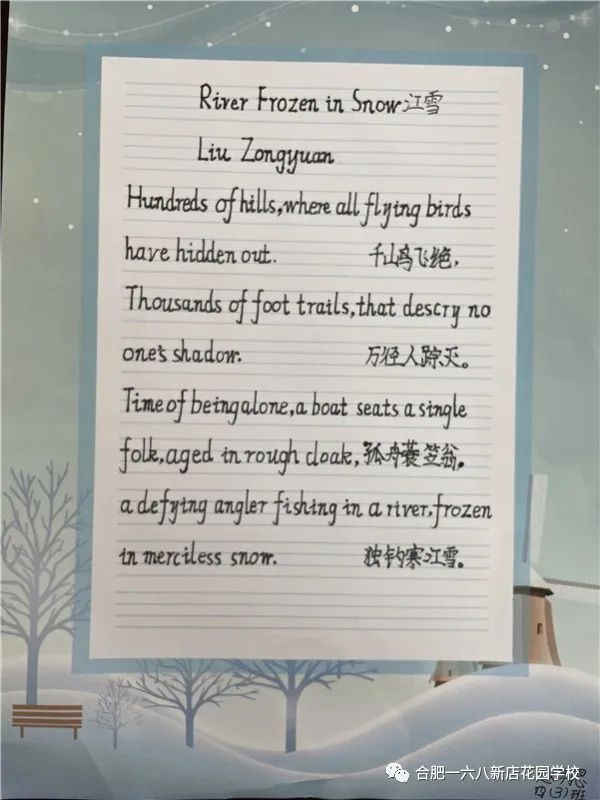 River Frozen in Snow江雪
Liu Zongyuan
Hundreds of hills,where all flying birds
have hidden out. 千山鸟飞绝,
Thousands of foot trails,that descry no
one's shadow. 万径人踪灭。
Time of being alone,a boat seats a single
folk,aged in rough cloak,孤舟蓑笠翁。
a defying angler fishing in a river,frozen
in merciless snow. 独钓寒江雪。
合肥一六八新店花园学校
四(3)班